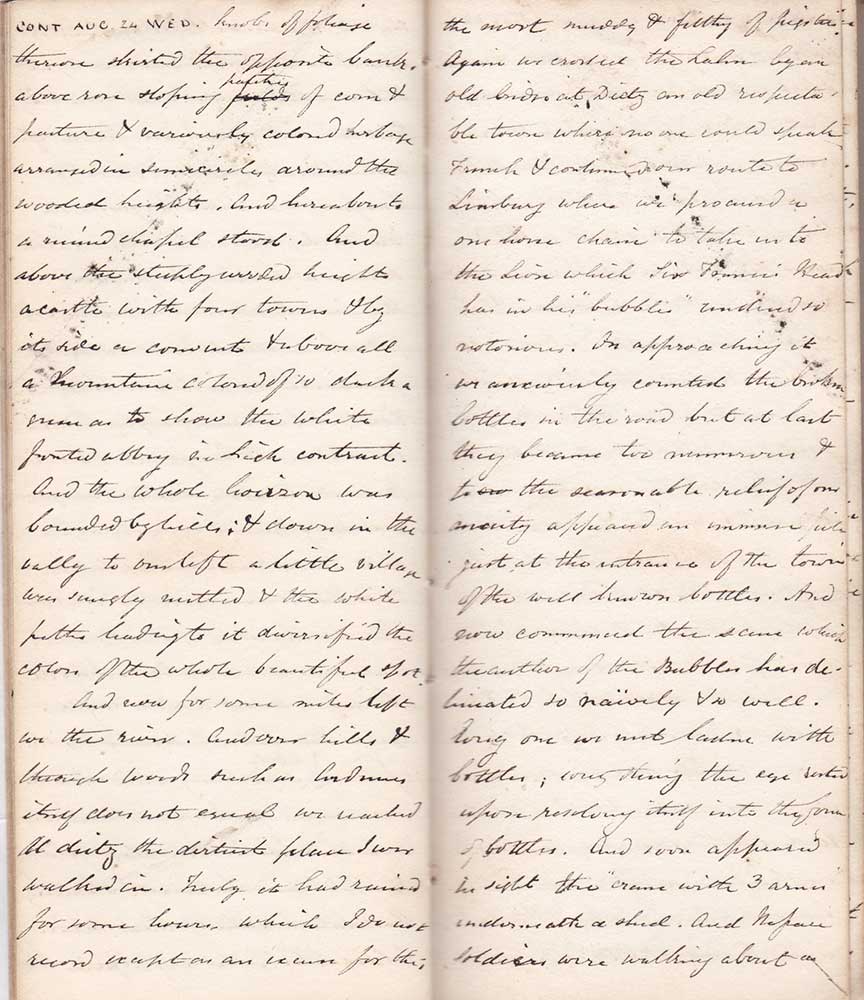 CONT AUG. 24 WED. knobs of foliage
thereon skirted the opposite bank.
above rose sloping patches fields of corn &
pasture & variously colored herbage
arranged in semicircles around the
wooded heights. And hereabouts
a ruined chapel stood. And
above the steeply wooded heights
a castle with four towers & by
its side a convent & above all
a mountain colored of so dark a
green as to show the white
fronted abbey in high contrast.
And the whole horizon was
bounded by hills; & down in the
vally to our left a little village
was snugly nettled & the white
paths leading to it diversified the
colors of the whole beautiful spot.
And now for some miles left
we the river. And over hills &
through woods such as Ardennes
itself does not equal we reached
At dietz the dirtiest place I ever
walked in. Truly it had rained
for some hours which I do not
record except as an excuse for this
the most muddy & filthy of pigsties.
Again we crossed the Lahn by an
old bridge at Dietz an old respecta-
ble town where no one could speak
French & continued our route to
Limburg where we procured a
one horse chaise to take us to
the Lion which Sir Francis Head
has in his "bubbles" rendered so
notorious. In approaching it
we anxiously counted the broken
bottles in the road but at last
they became too numerous &
to the seasonable relief of our
anxiety appeared an immense pile
just at the entrance of the town
of the well known bottles. And
now commenced the scene which
the author of the Bubbles has de-
lineated so naïvely & so well.
Every one we met laden with
bottles; everything the eye rested
upon resolving itself into the form
of bottles. And soon appeared
in sight the "crane with 3 arms"
underneath a shed. And Nassau
soldiers were walking about as